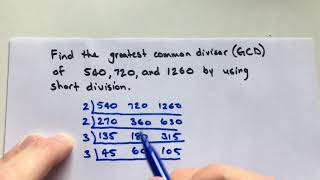 Find the greatest common divisor (GCD)
of 540, 720, and 1260 by using
short division.
2 540 720 1260
2 270 360 630
3 135 180 315
3 45 60 105